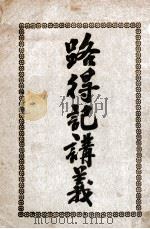 路得記講義